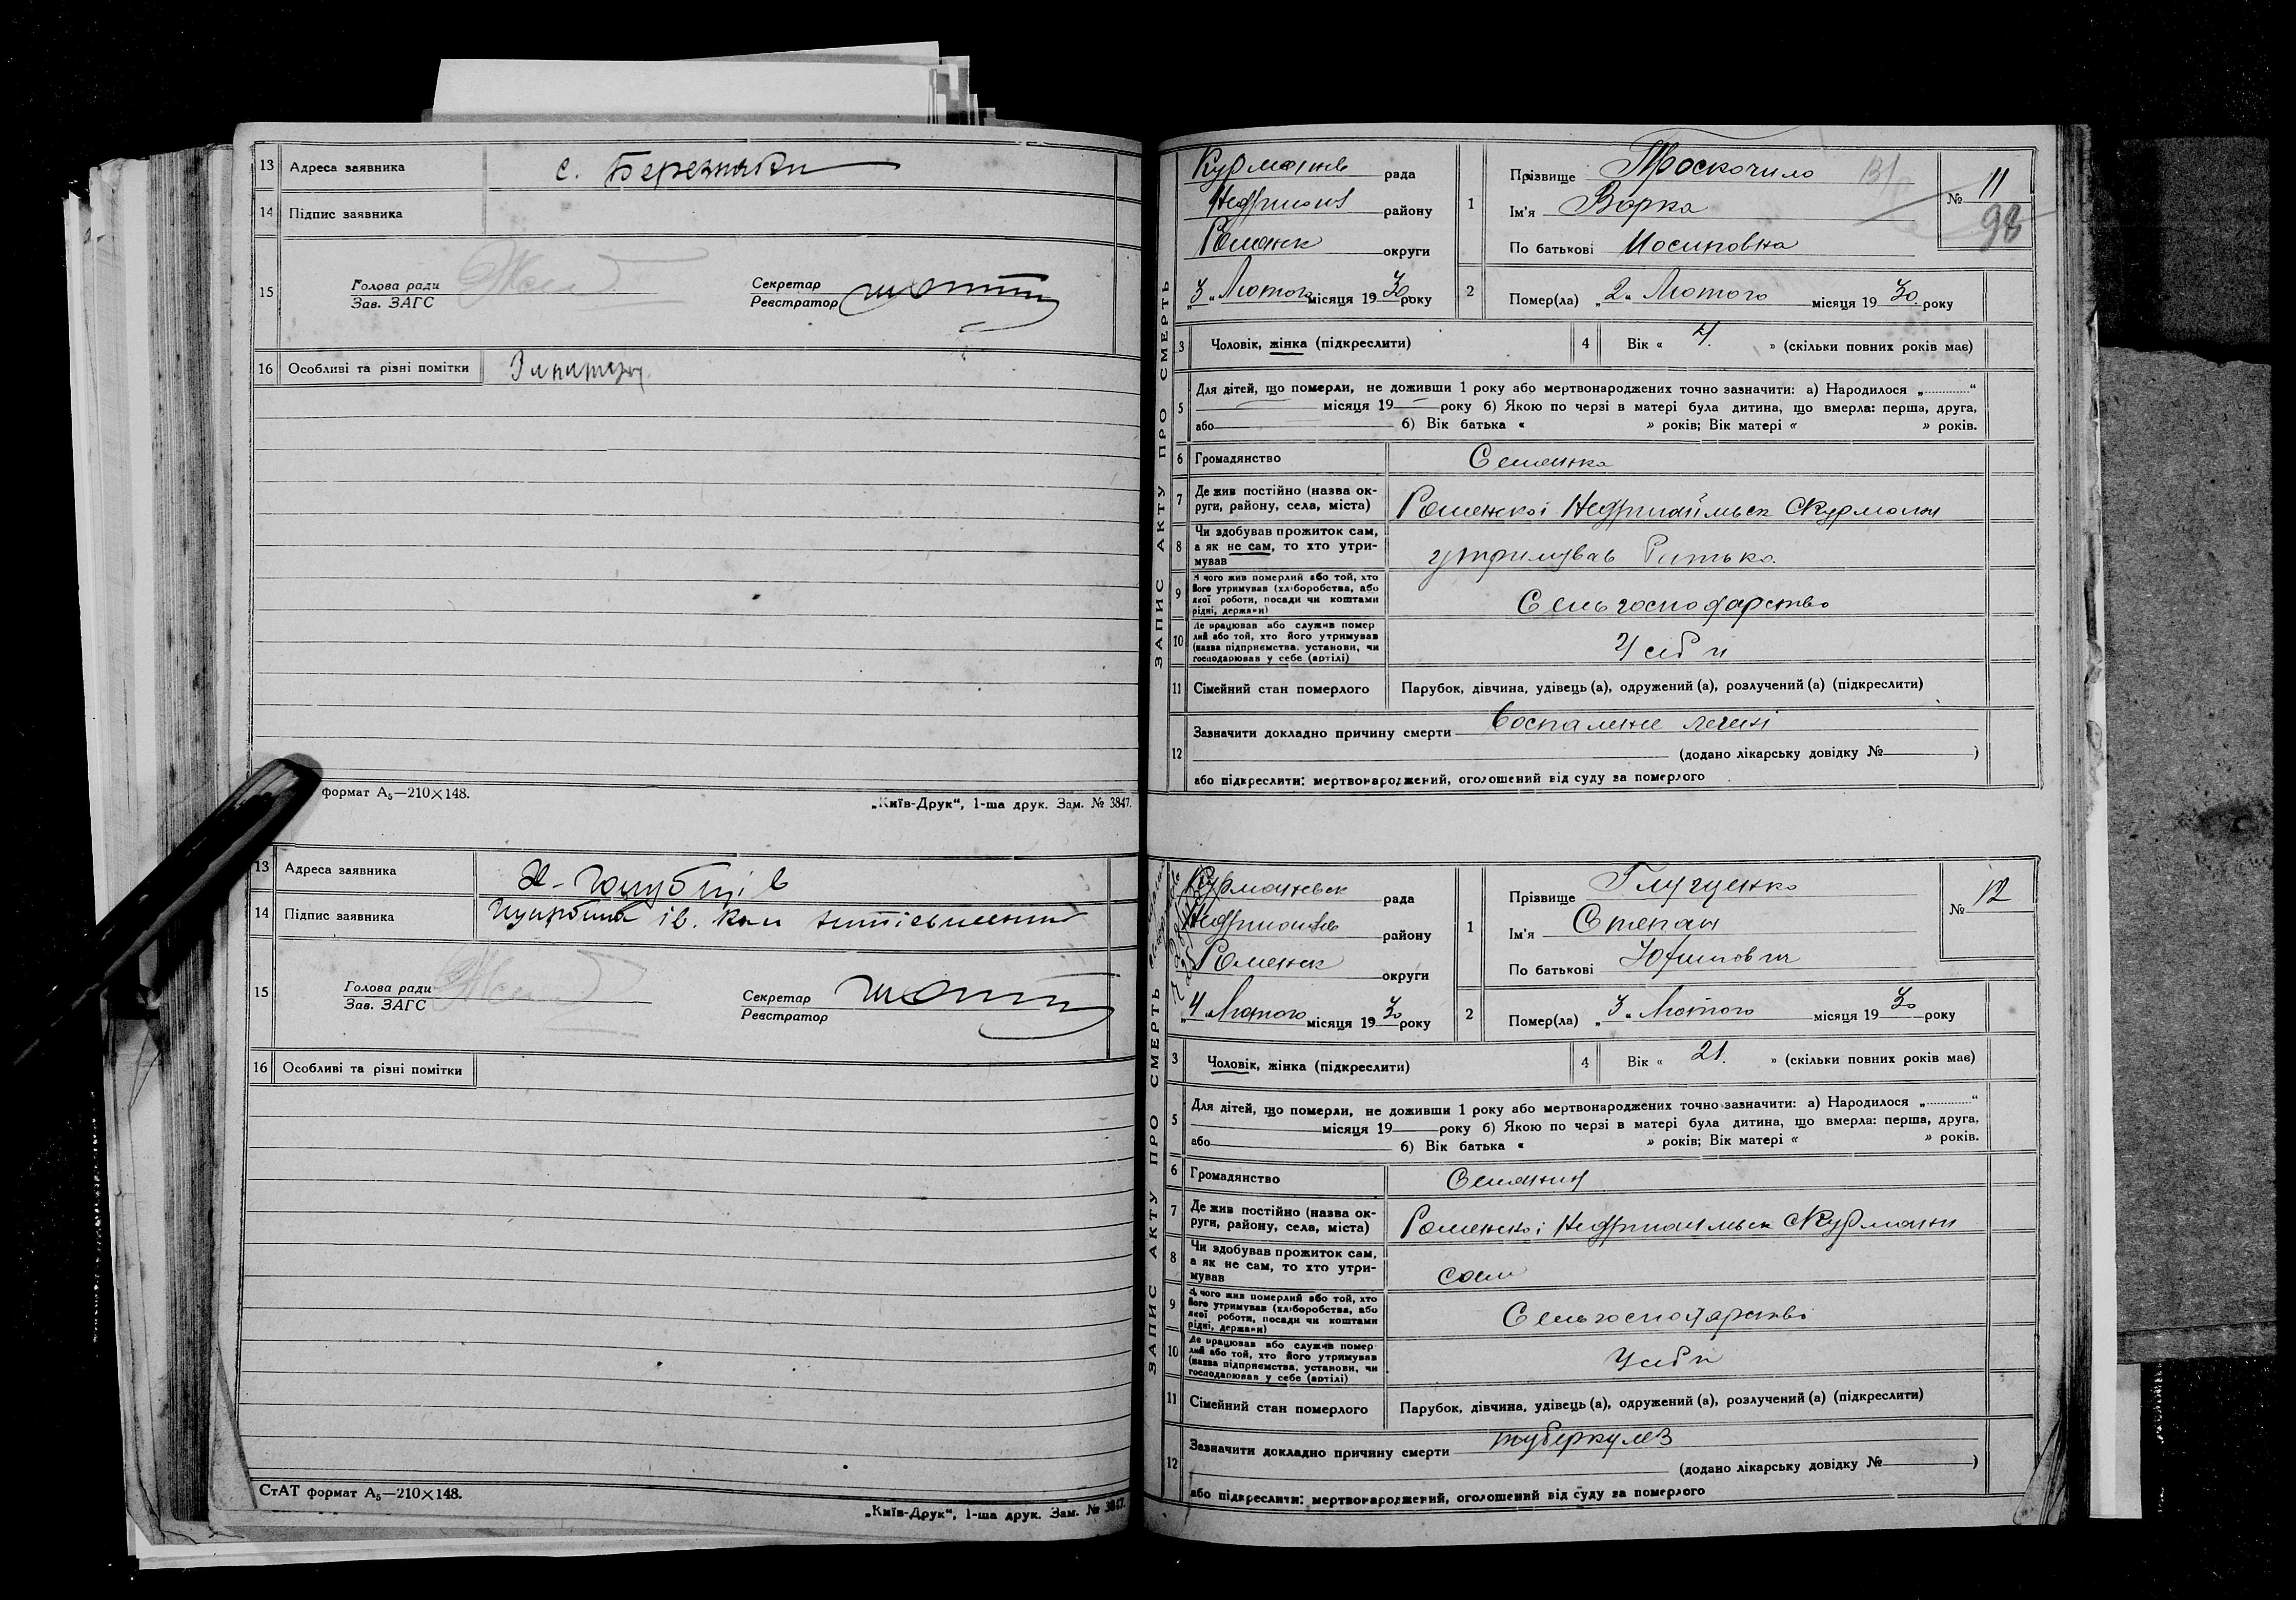 13 Адреса заявника с. Березняки
14 Підпис заявника
15 Голова ради
Зав. ЗАГС
Секретар
Реєстратор
16 Особливі та різні помітки
формат А₅—210×148.
„Київ-Друк“, 1-ша друк. Зам. № 3847.
13 Адреса заявника
14 Підпис заявника
15 Голова ради
Зав. ЗАГС
Секретар
Реєстратор
16 Особливі та різні помітки
СтАТ формат А₅—210×148.
„Київ-Друк“, 1-ша друк. Зам. № 3847.
ЗАПИС АКТУ ПРО СМЕРТЬ
рада
району
Роменск округи
„3„ Лютого місяця 19 30 року
1 Прізвище Проскочило
Ім'я Варка
По батькові Иосиповна
№ 11
98
2 Помер(ла) „2„ Лютого місяця 19 30 року
3 Чоловік, жінка (підкреслити)
4 Вік « 4 » (скільки повних років має)
5 Для дітей, що померли, не доживши 1 року або мертвонароджених точно зазначити: а) Народилося „............“
місяця 19 року б) Якою по черзі в матері була дитина, що вмерла: перша, друга,
або б) Вік батька « » років; Вік матері « » років.
6 Громадянство Селянка
7 Де жив постійно (назва ок-
руги, району, села, міста) Роменскоі
8 Чи здобував прожиток сам,
а як не сам, то хто утри-
мував утримував Батько
9 З чого жив померлий або той, хто
його утримував (хліборобства, або
якої роботи, посади чи коштами
рідні, держави) Сельгосподарство
10 Де працював або служив помер
лий або той, хто його утримував
(назва підприємства, установи, чи
господарював у себе (артілі) У себи
11 Сімейний стан померлого Парубок, дівчина, удівець (а), одружений (а), розлучений (а) (підкреслити)
12 Зазначити докладно причину смерти воспаление легкі
(додано лікарську довідку № )
або підкреслити: мертвонароджений, оголошений від суду за померлого
ЗАПИС АКТУ ПРО СМЕРТЬ
Курманевск рада
району
Роменск округи
„4 Лютого місяця 19 30 року
1 Прізвище Глущенко
Ім'я Степан
По батькові Юхимович
№ 12
2 Помер(ла) „3„ Лютого місяця 19 30 року
3 Чоловік, жінка (підкреслити)
4 Вік « 21. » (скільки повних років має)
5 Для дітей, що померли, не доживши 1 року або мертвонароджених точно зазначити: а) Народилося „............“
місяця 19 року б) Якою по черзі в матері була дитина, що вмерла: перша, друга,
або б) Вік батька « » років; Вік матері « » років.
6 Громадянство Селянин
7 Де жив постійно (назва ок-
руги, району, села, міста) Роменскоі
8 Чи здобував прожиток сам,
а як не сам, то хто утри-
мував сам
9 З чого жив померлий або той, хто
його утримував (хліборобства, або
якої роботи, посади чи коштами
рідні, держави) Сельгосподарство
10 Де працював або служив помер
лий або той, хто його утримував
(назва підприємства, установи, чи
господарював у себе (артілі) У себи
11 Сімейний стан померлого Парубок, дівчина, удівець (а), одружений (а), розлучений (а) (підкреслити)
12 Зазначити докладно причину смерти туберкулез
(додано лікарську довідку № )
або підкреслити: мертвонароджений, оголошений від суду за померлого